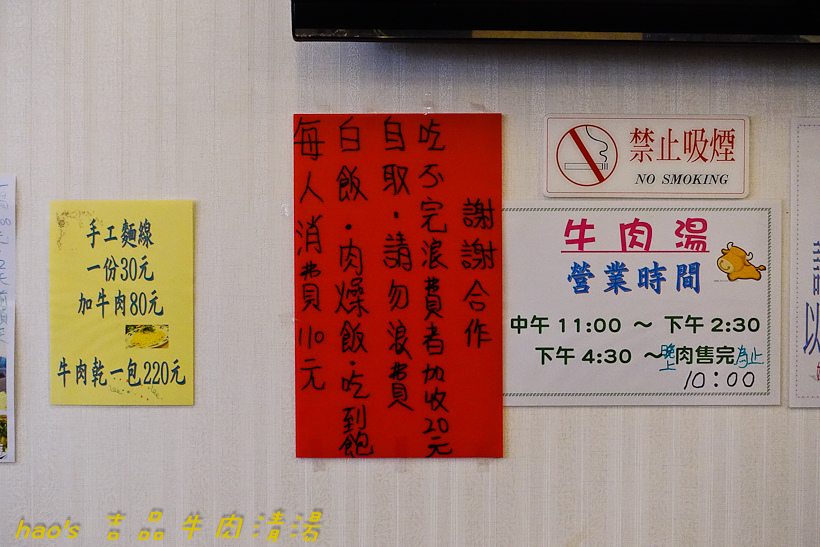 手工麵線
一份30元
加牛肉80元
牛肉乾一包220元
每人消費110元
白飯．肉燥飯．吃到飽
自取．請勿浪費
吃不完浪費者加收20元
謝謝合作
禁止吸煙
NO SMOKING
牛肉湯
營業時間
中午 11:00 ～ 下午 2:30
下午 4:30 ～晚上肉售完為止
10:00
hao's 吉品牛肉清湯